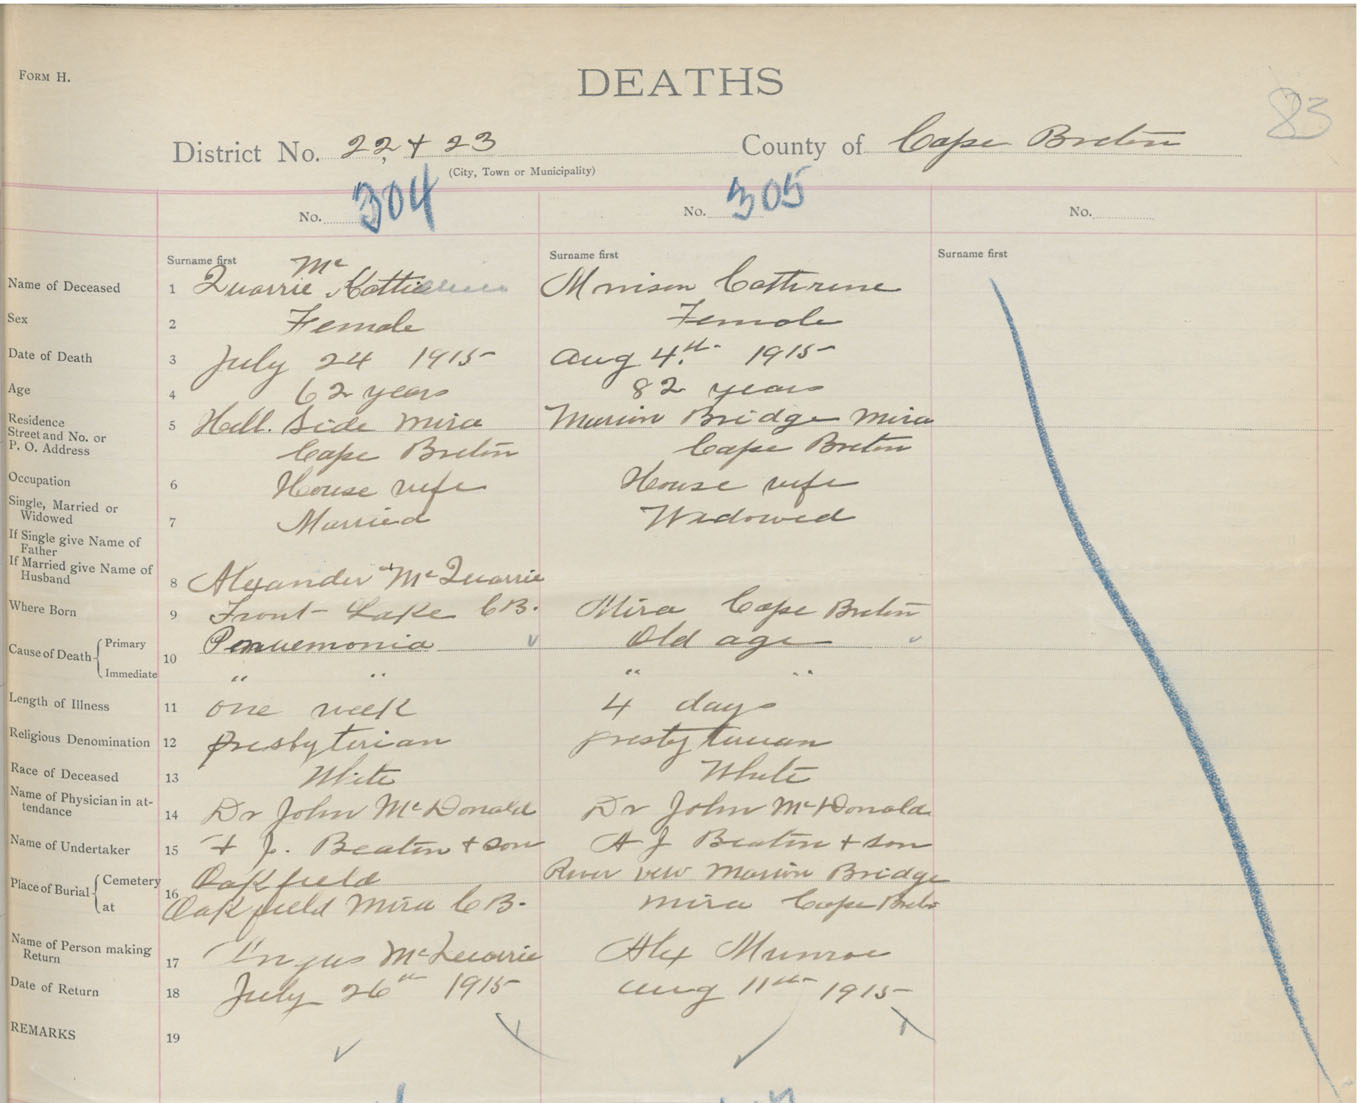 FORM H.
DEATHS
83
District No. 22 + 23 County of Cape Breton
(City, Town or Municipality)
No. 304 No. 305 No.
Surname first Surname first Surname first
Mc
Name of Deceased 1 Quarrie Kattie Morrison Cathrene
Sex 2 Female Female
Date of Death 3 July 24 1915 Aug 4th 1915
Age 4 62 years 82 years
Residence
Street and No. or
P. O. Address
5 Hill Side Mira Marion Bridge Mira
Cape Breton Cape Breton
Occupation 6 House wife House wife
Single, Married or
Widowed
7 Married Widowed
If Single give Name of
Father
If Married give Name of
Husband
8 Alexander McQuarrie
Where Born 9 Front Lake C B. Mira Cape Breton
Cause of Death Primary Immediate 10 Penuemonia Old age
" " " "
Length of Illness 11 one week 4 days
Religious Denomination 12 Presbyterian presbyterian
Race of Deceased 13 White White
Name of Physician in at-
tendance
14 Dr John McDonald Dr John McDonald
Name of Undertaker 15 A J. Beaton + son A J Beaton + son
Place of Burial Cemetery at 16 Oakfield River view Marion Bridge
Oakfield Mira C B. Mira Cape Breton
Name of Person making
Return
17 Angus McQuarrie Alex Munroe
Date of Return 18 July 26th 1915 Aug 11th 1915
REMARKS 19